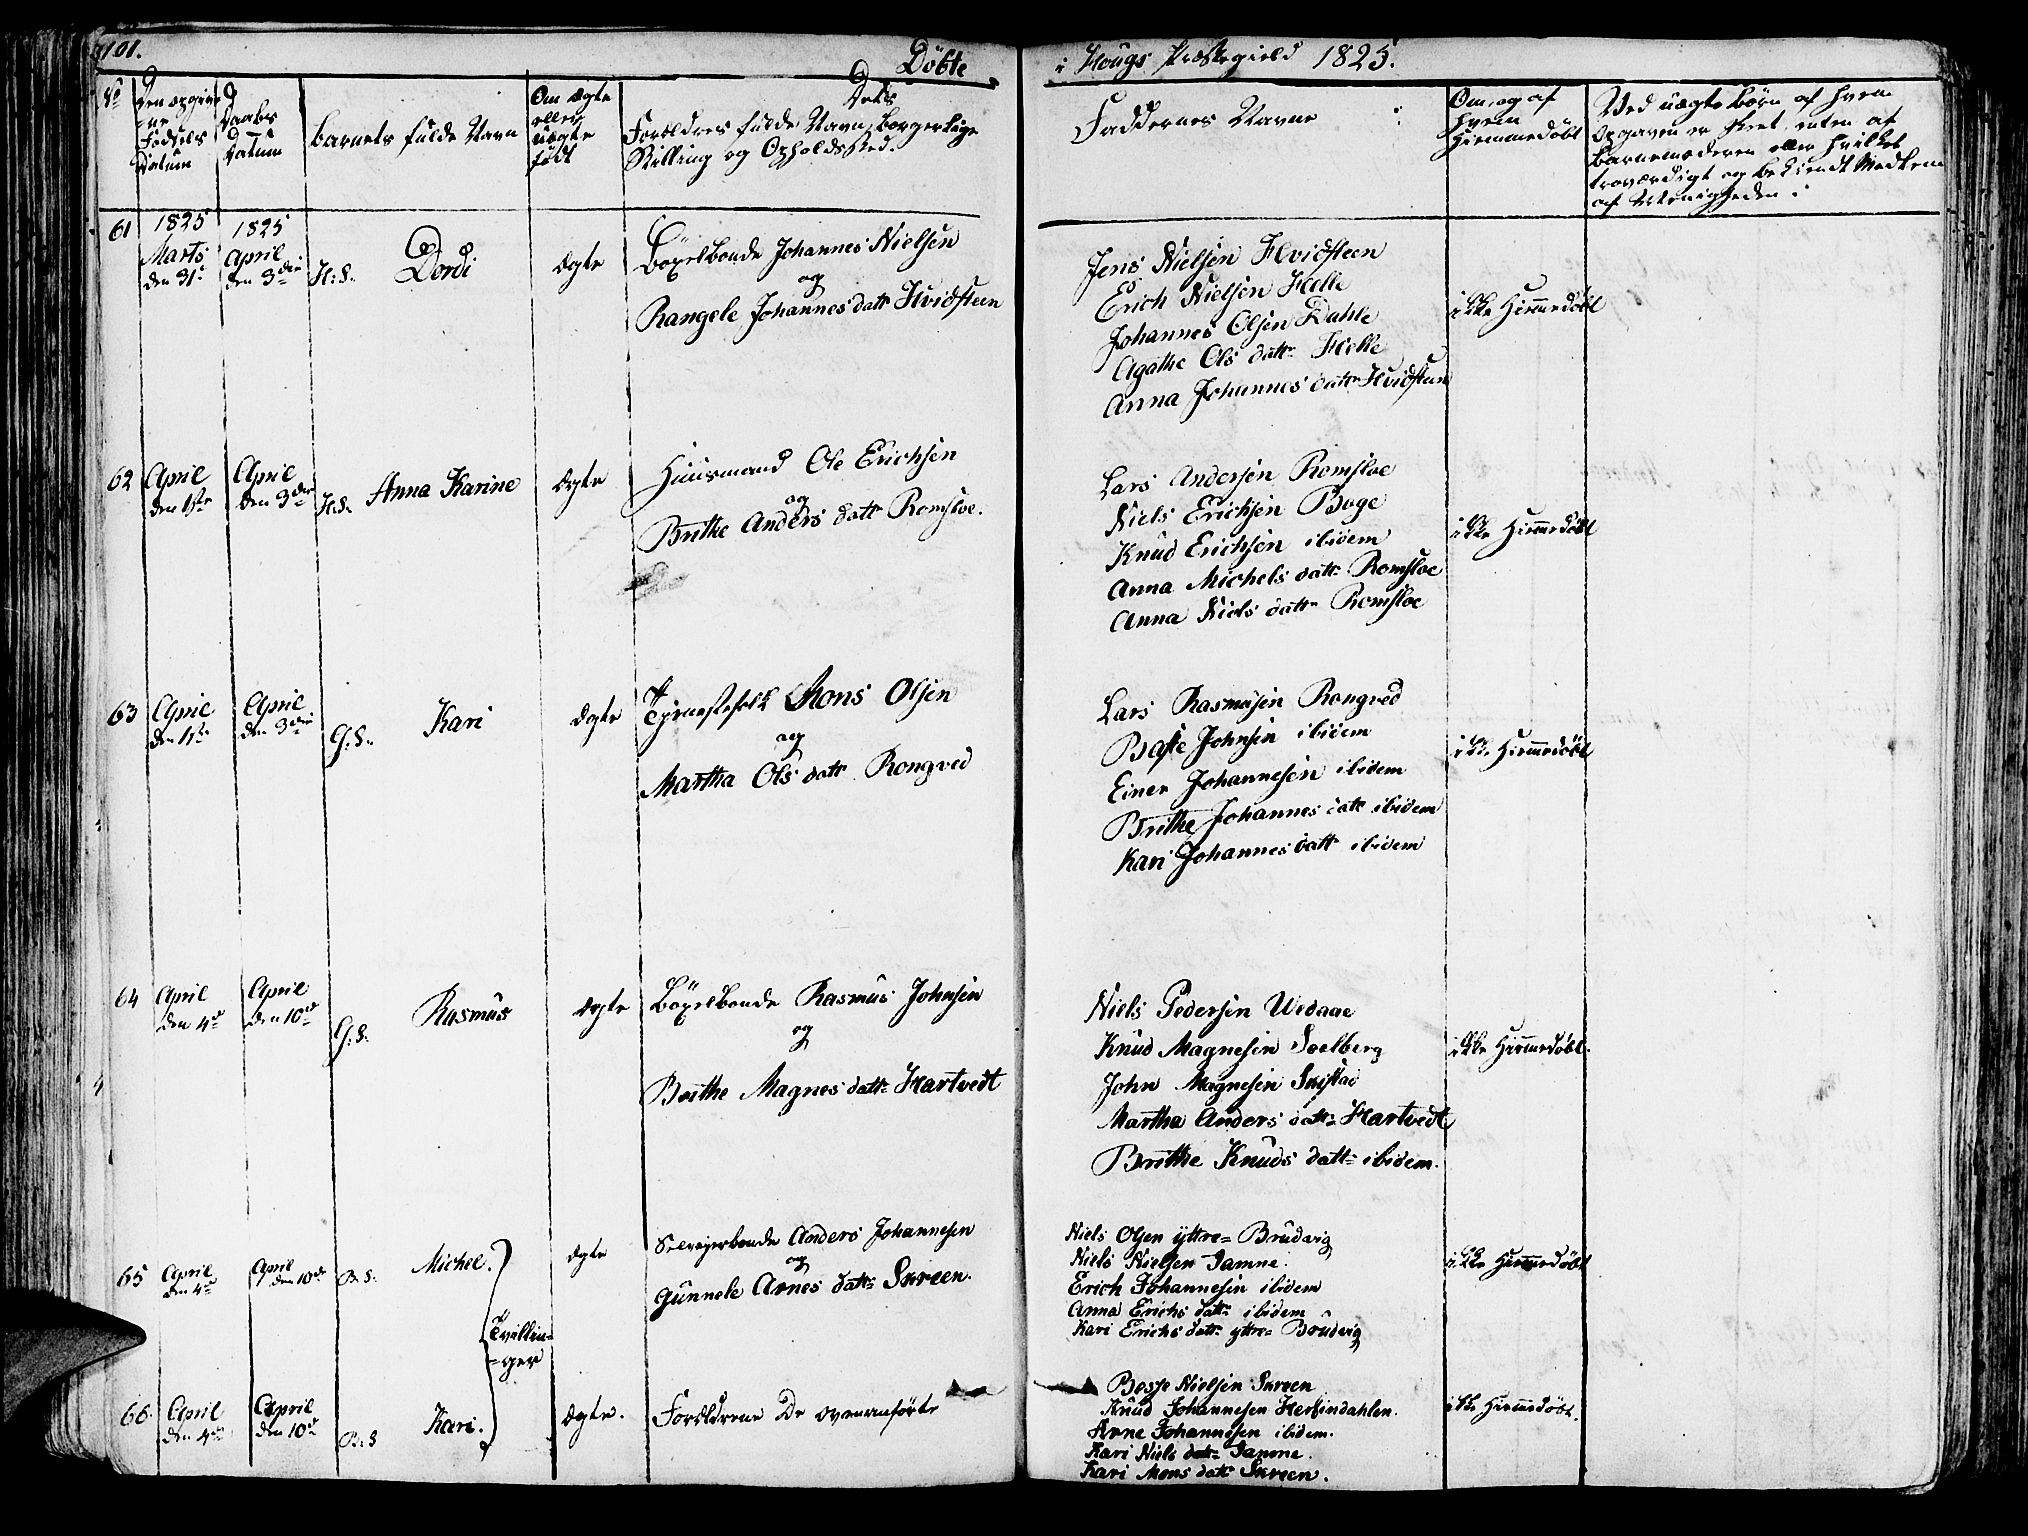 101.
Döbte
i Hougs Præstegield 1825.
No
Den opgivne Fødsels Datum
Daabs Datum
Barnets fulde Navn
Om ægte eller uægte født
Forældres fulde Navn, Borgerlige Stilling og Opholdsted.
Faddernes Navne
Om og af hvem Hiemmedöbt
Ved uægte Börn af hvem Opgaven er skeet, enten af Barnemoderen eller hvilket troværdigt og bekiendt Medlem af Menigheden
61
1825
Marts
den 31te
1825
April
den 3die
H: S.
Dordi
Ægte
Böxelbonde Johannes Nielsen
og
Rangele Johannes datt Hvidsteen
Jens Nielsen Hvidsteen
Erich Nielsen Helle
Johannes Olsen Dahle
Agathe Ols datt Helle
Anna Johannes datt Hvidsteen
ikke Hiemmedöbt
62
April
den 1ste
April
den 3die
H.S.
Anna Karine
Ægte
Huusmand Ole Erichsen
og
Brithe Anders datt Romsloe.
Lars Andersen Romsloe
Niels Erichsen Boge
Knud Erichsen ibidem
Anna Michels datt Romsloe
Anna Niels datt Romsloe
ikke Hiemmedöbt
63
April
den 1ste
April
den 3die
G: S.
Kari
Ægte
Tjenestefolk Mons Olsen
og
Martha Ols datt Rongved
Lars Rasmusen Rongved
Johnsen ibidem
Einer Johannesen ibidem
Brithe Johannes datt ibidem
Kari Johannes datt ibidem
ikke Hiemmedöbt
64
April
den 4de
April
den 10de
G: S.
Rasmus
Ægte
Böxelbonde Rasmus Johnsen
og
Brithe Magnes datt Hartvedt
Niels Pedersen Wedaae
Knud Magnesen Soelberg
John Magnesen
Martha Anders datt Hartvedt
Brithe Knuds datt ibidem.
ikke Hiemmedöbt.
65
April
den 4de
April
den 10de
B: S.
Michel.
Tvillin=
=ger
Ægte
Selveierbonde Anders Johannesen
og
Gunnele Arnes datt Skreen.
Niels Olsen yttre= Brudvig
Niels Nielsen Tamne.
Erich Johannesen ibidem
Anna Erichs datt ibidem
Kari Erichs datt yttre= Brudvig
ikke Hiemmedöbt
66.
April
den 4de
April
den 10de
B: S
Kari.
Ægte.
Forældrene De ovenanførte
Nielsen Skreen
Knud Johannesen Herfindahlen.
Arne Johannesen ibidem.
Kari Niels datt Tamne.
Kari Mons datt Skreen.
ikke Hiemmedöbt.